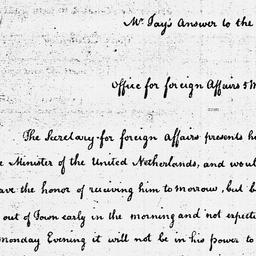 Mr. Jay's Answer to the
Office for foreign Affairs 5
The Secretary for foreign Affairs presents
Minister of the United Netherlands, and
ave the honor of reciving him to morrow, but
out of Town early in the morning and not
Monday Evening it will not be in his power to